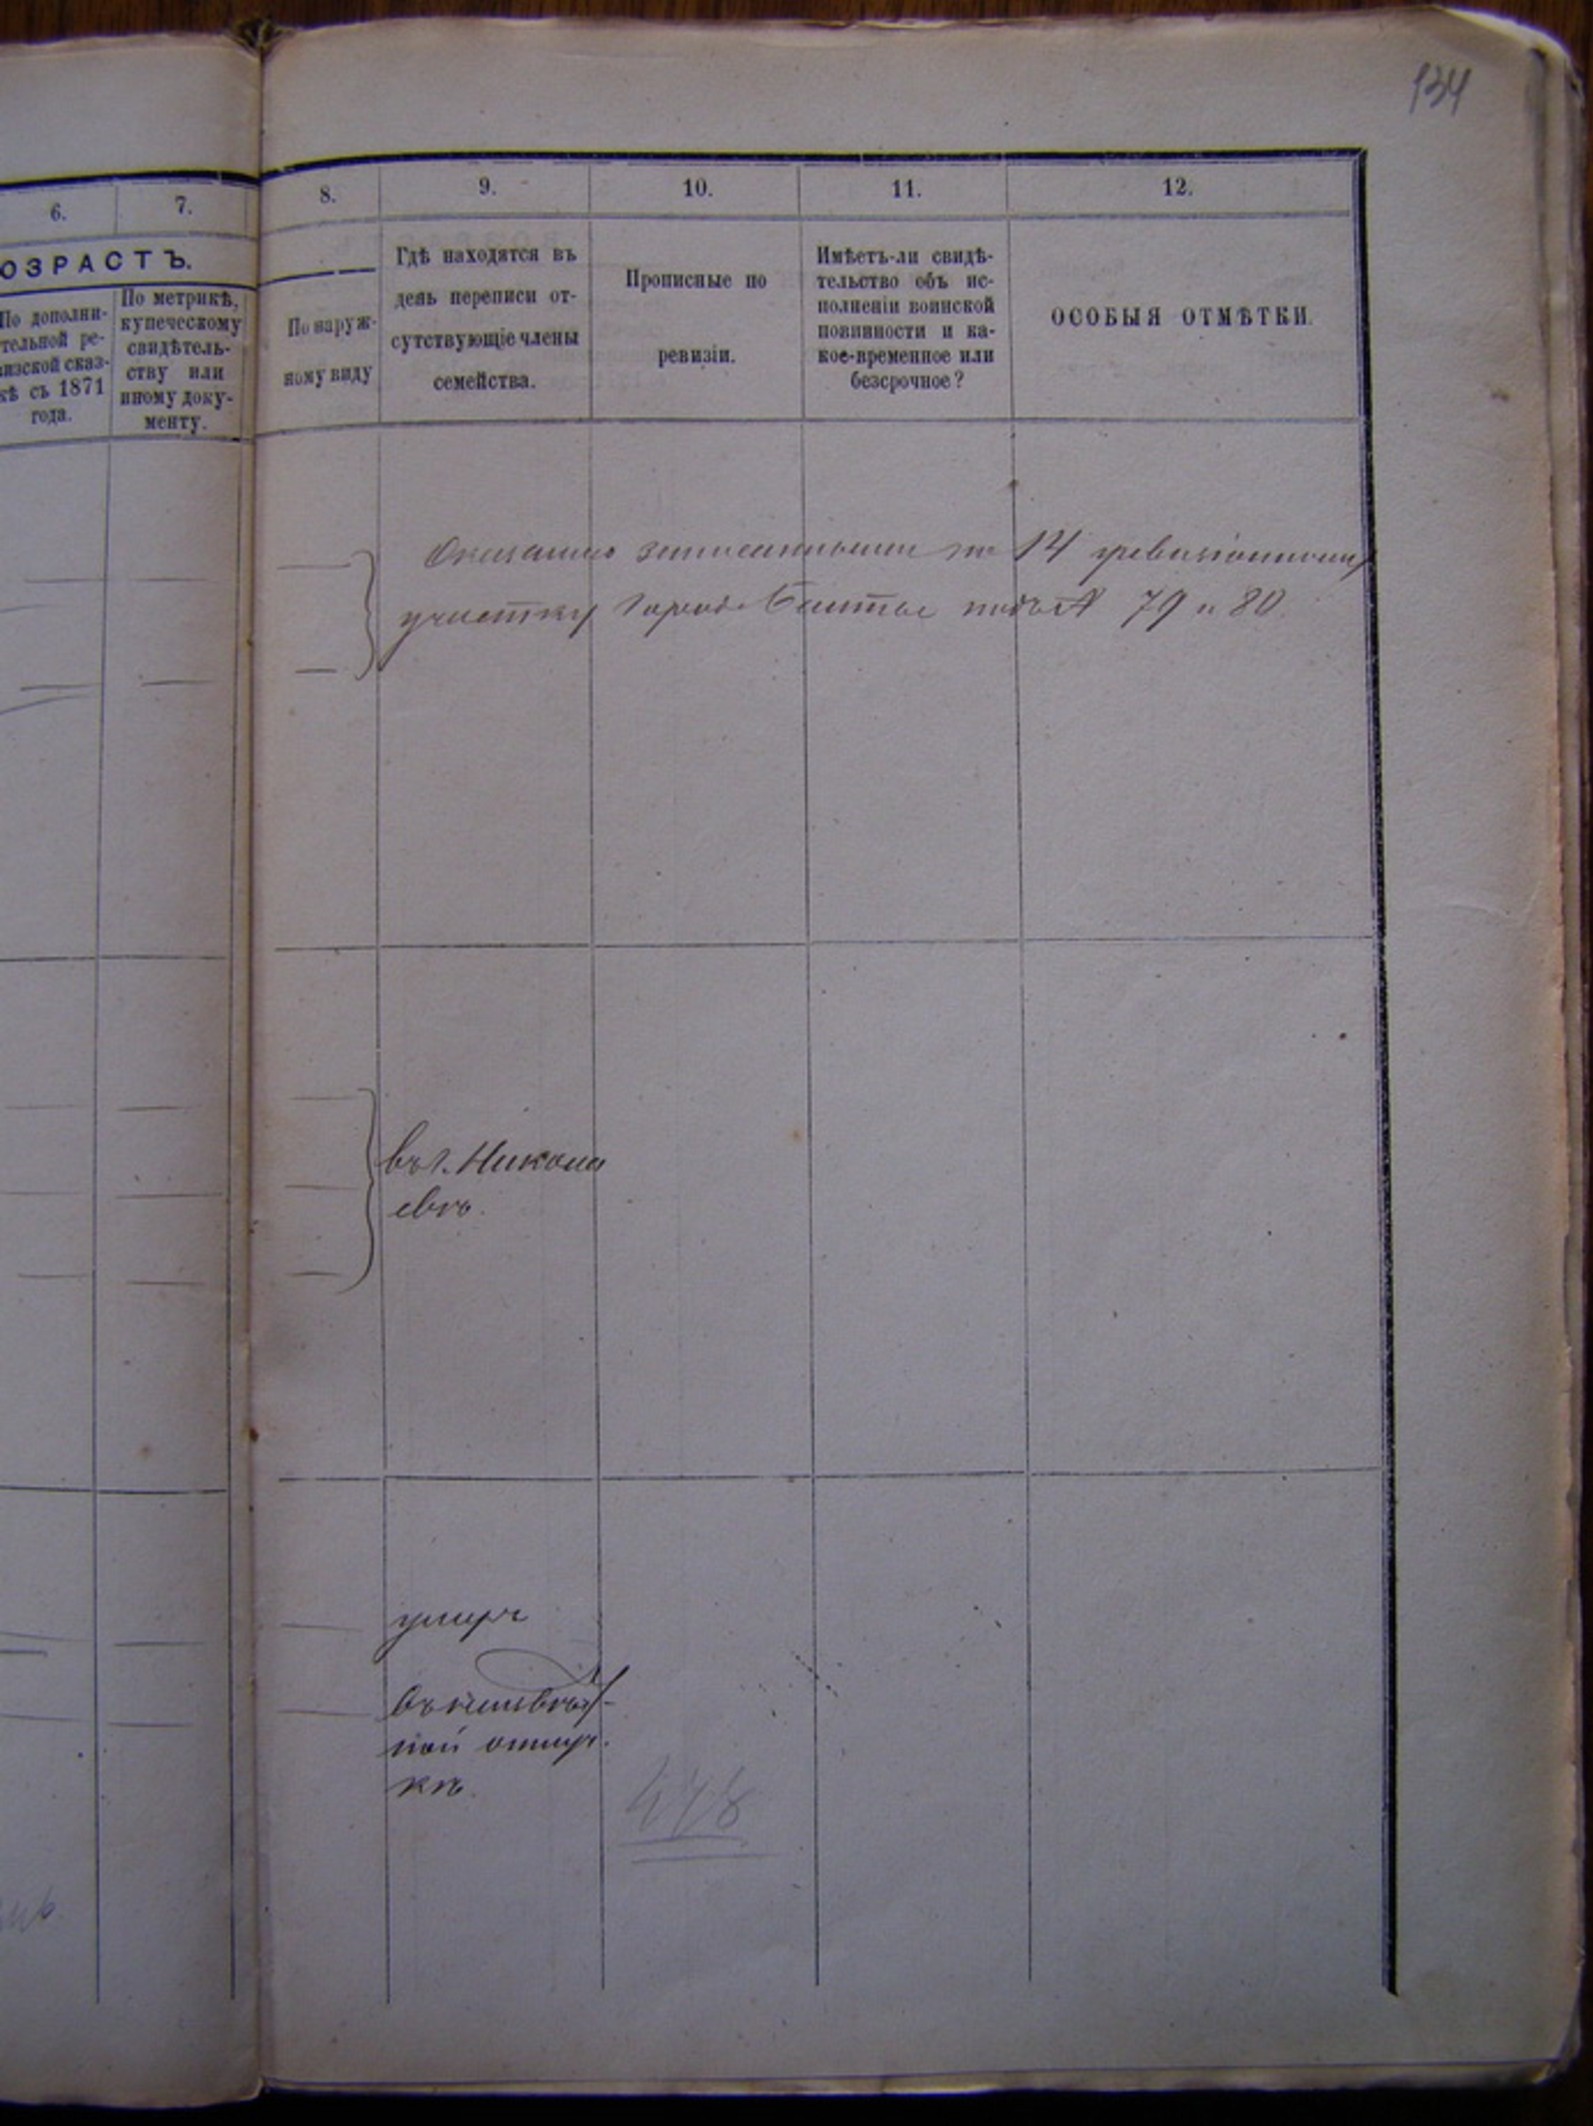 134
6. 7. 8. 9. 10. 11. 12.
ОЗРАСТЪ.
По дополни-
тельной ре-
визской сказ-
кѣ съ 1871
года.
По метрикѣ,
купеческому
свидѣтель-
ству или
иному доку-
менту.
По наруж-
ному виду
Гдѣ находятся въ
день переписи от-
сутствующіе члены
семейства.
Прописные по
ревизіи.
Имѣетъ-ли свидѣ-
тельство объ ис-
полненіи воинской
повинности и ка-
кое-временное или
безсрочное?
ОСОБЫЯ ОТМѢТКИ.
записанными по 14 ревизіонному
участку город Балтѣ подъ № 79 и 80.
въ г. Никола
евѣ.
умеръ
ной отлуч-
кѣ.
478